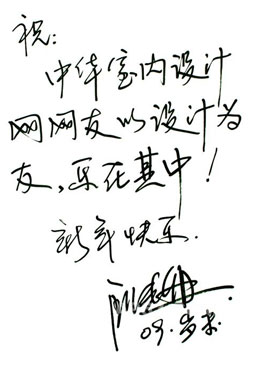 祝:
中华室内设计
网网友以设计为
友,乐在其中!
新年快乐.
09.岁末.